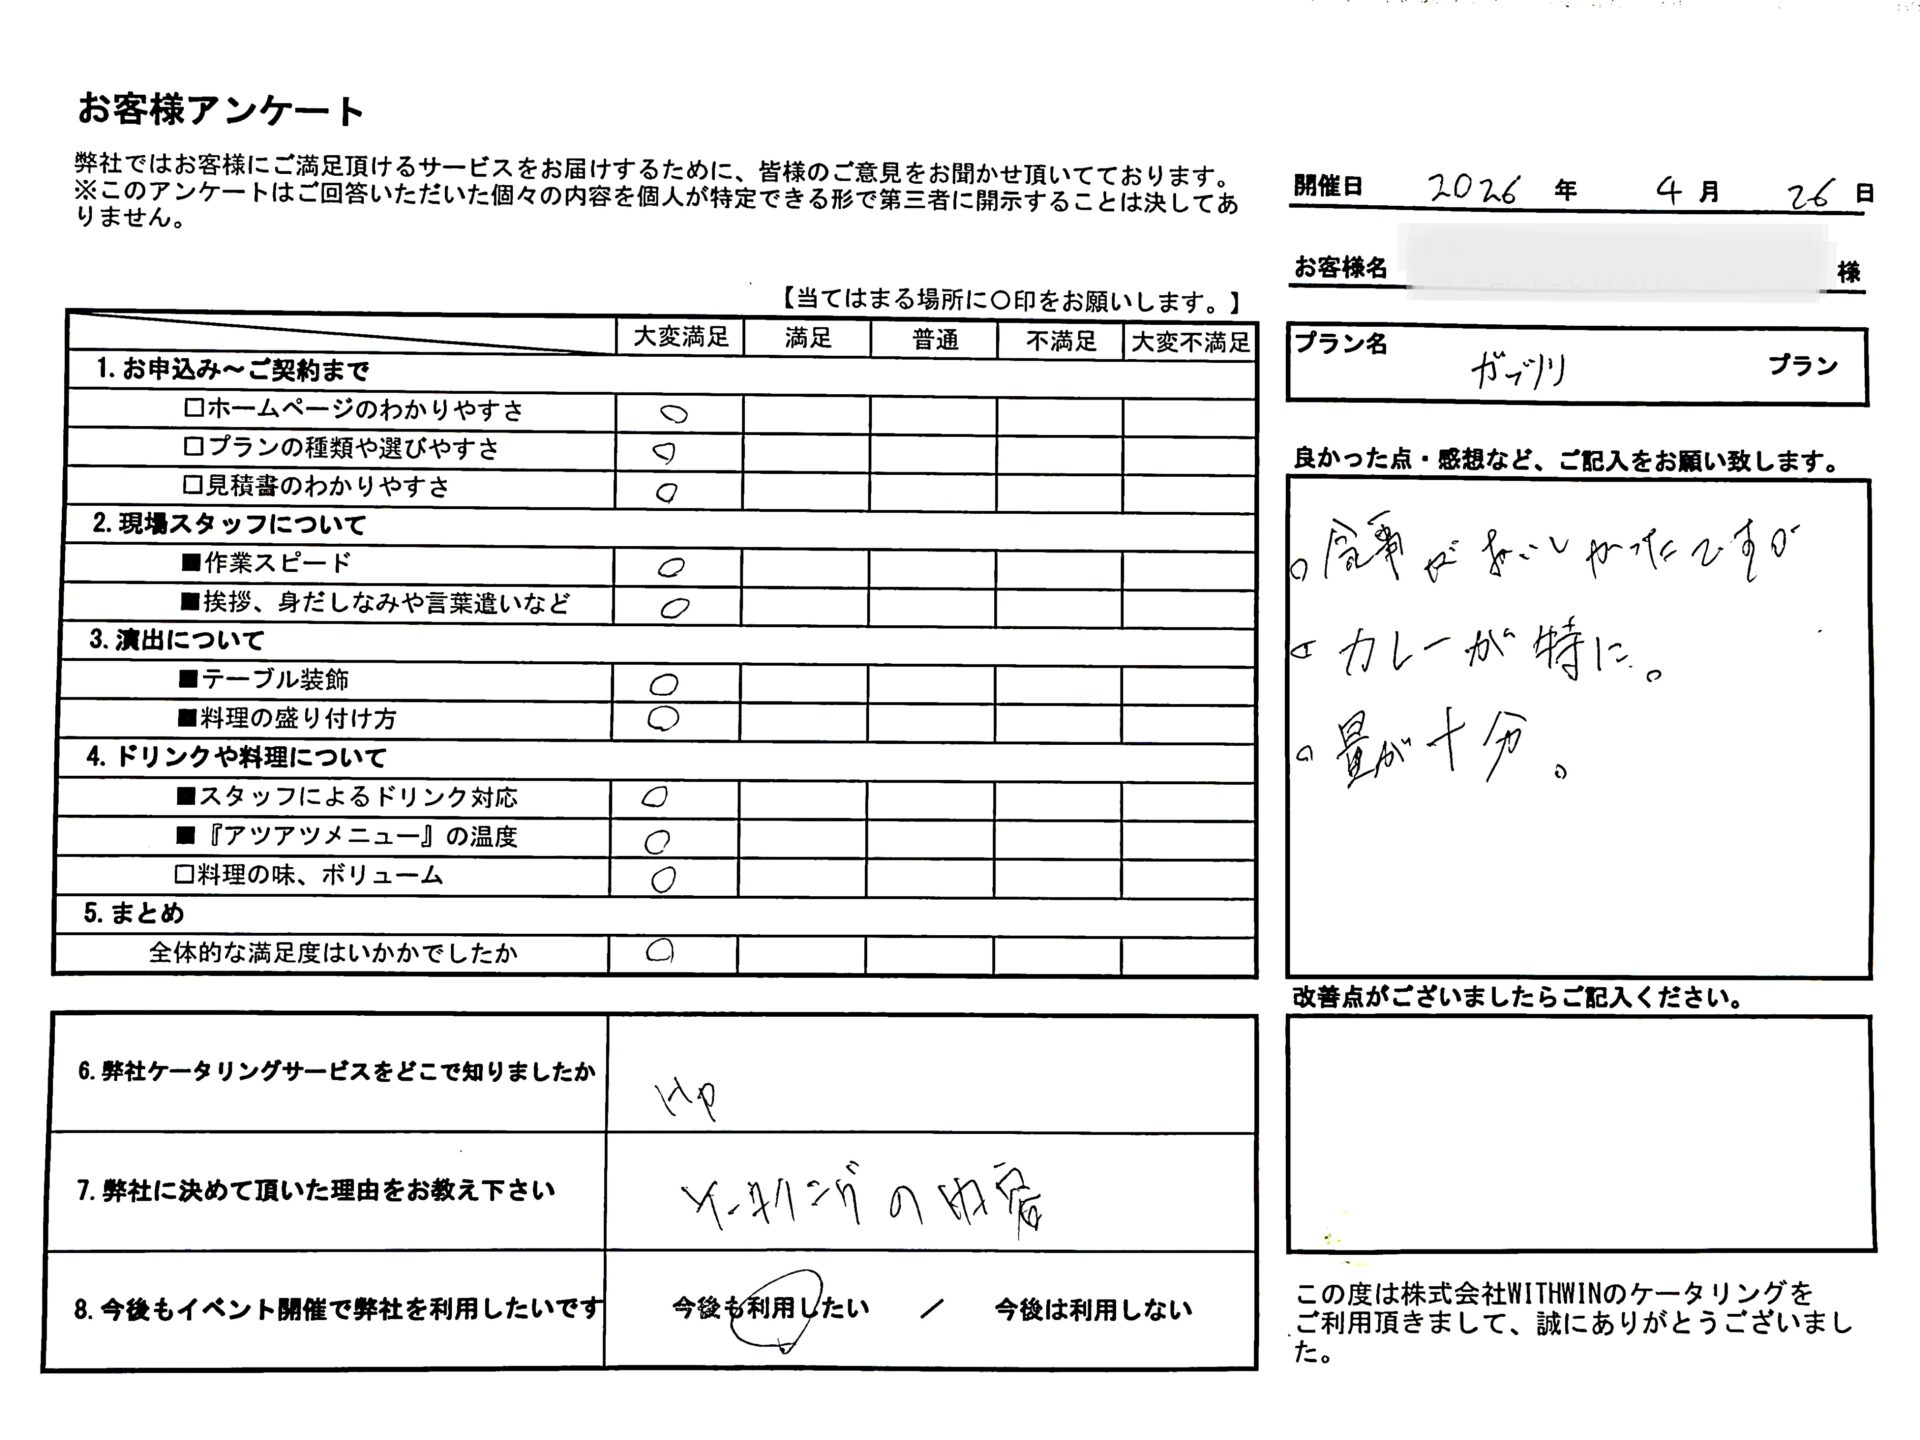 お客様アンケート
弊社ではお客様にご満足頂けるサービスをお届けするために、皆様のご意見をお聞かせ頂いてております。
※このアンケートはご回答いただいた個々の内容を個人が特定できる形で第三者に開示することは決してあ
りません。
【当てはまる場所に〇印をお願いします。】
大変満足 満足 普通 不満足 大変不満足
1.お申込み～ご契約まで
□ホームページのわかりやすさ ○
□プランの種類や選びやすさ ○
□見積書のわかりやすさ ○
2.現場スタッフについて
■作業スピード ○
■挨拶、身だしなみや言葉遣いなど ○
3.演出について
■テーブル装飾 ○
■料理の盛り付け方 ○
4.ドリンクや料理について
■スタッフによるドリンク対応 ○
■『アツアツメニュー』の温度 ○
□料理の味、ボリューム ○
5.まとめ
全体的な満足度はいかかでしたか ○
6.弊社ケータリングサービスをどこで知りましたか HP
7.弊社に決めて頂いた理由をお教え下さい ケータリングの内容
8.今後もイベント開催で弊社を利用したいです 今後も利用したい / 今後は利用しない
開催日 2026 年 4 月 26 日
お客様名 様
プラン名 ガブリ プラン
良かった点・感想など、ご記入をお願い致します。
○食事がおいしかったですが
○カレーが特に。
○量が十分。
改善点がございましたらご記入ください。
この度は株式会社WITHWINのケータリングを
ご利用頂きまして、誠にありがとうございまし
た。